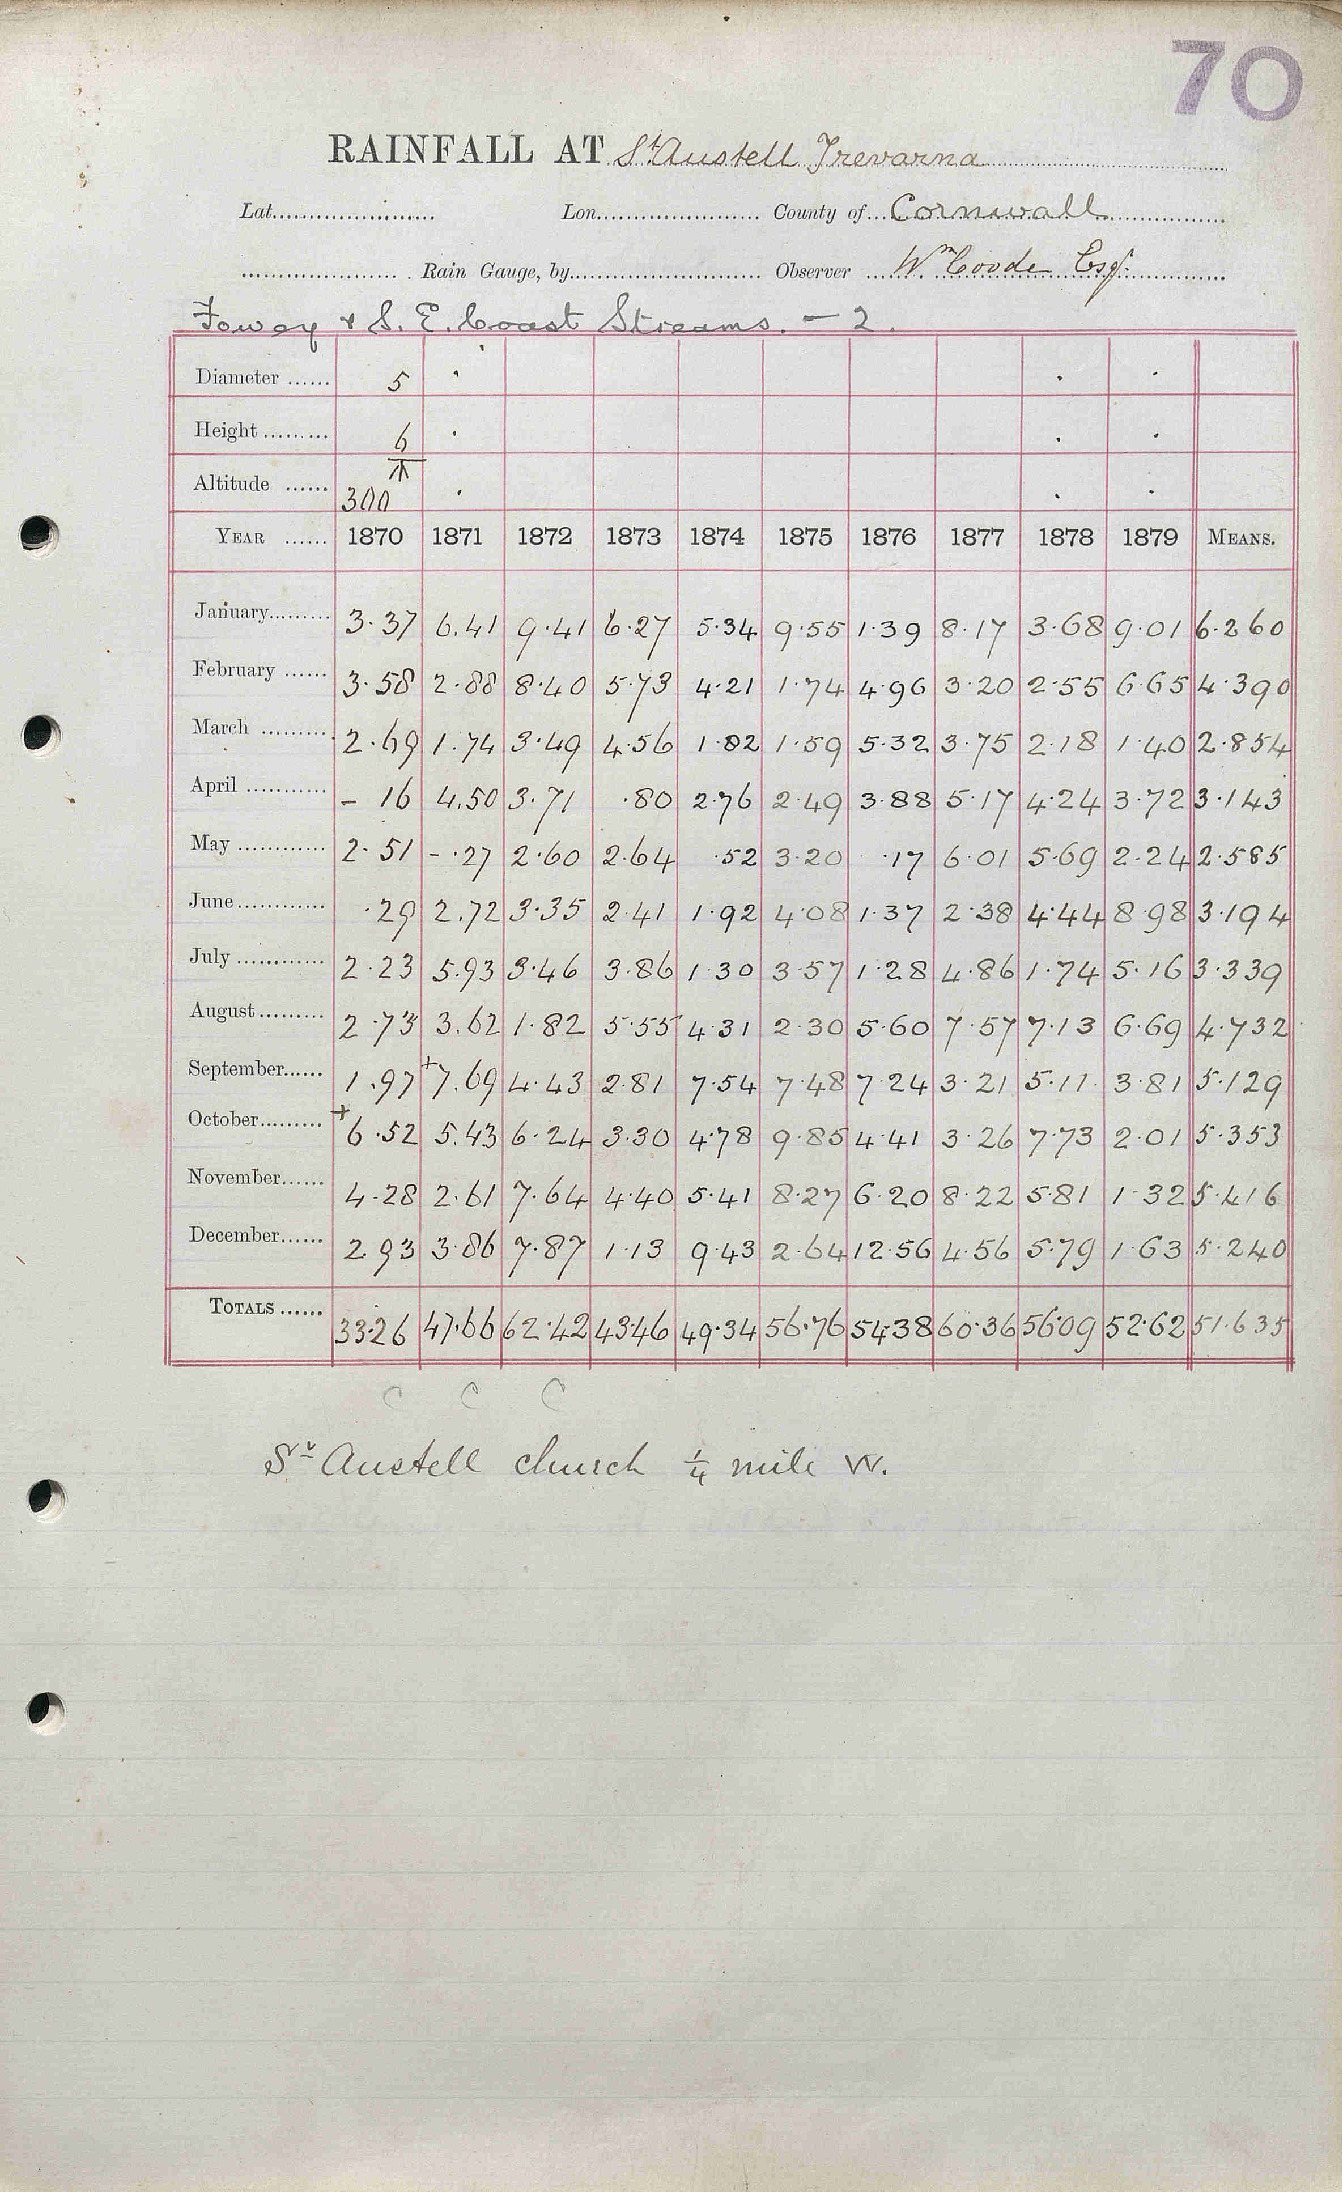 70
RAINFALL AT St Austell Trevarna
Lat. Lon. County of Cornwall
Rain Gauge, by Observer Wm Coode Esq.
Fowey & S. E. Coast Streams. — 2.
Diameter 5
Height 6
Altitude 300
YEAR 1870 1871 1872 1873 1874 1875 1876 1877 1878 1879 MEANS.
January 3.37 6.41 9.41 6.27 5.34 9.55 1.39 8.17 3.68 9.01 6.260
February 3.58 2.88 8.40 5.73 4.21 1.74 4.96 3.20 2.55 6.65 4.390
March 2.69 1.74 3.49 4.56 1.82 1.59 5.32 3.75 2.18 1.40 2.854
April – 16 4.50 3.71 .80 2.76 2.49 3.88 5.17 4.24 3.72 3.143
May 2.51 – .27 2.60 2.64 .52 3.20 .17 6.01 5.69 2.24 2.585
June .29 2.72 3.35 2.41 1.92 4.08 1.37 2.38 4.44 8.98 3.194
July 2.23 5.93 3.46 3.86 1.30 3.57 1.28 4.86 1.74 5.16 3.339
August 2.73 3.62 1.82 5.55 4.31 2.30 5.60 7.57 7.13 6.69 4.732
September 1.97 +7.69 4.43 2.81 7.54 7.48 7.24 3.21 5.11 3.81 5.129
October +6.52 5.43 6.24 3.30 4.78 9.85 4.41 3.26 7.73 2.01 5.353
November 4.28 2.61 7.64 4.40 5.41 8.27 6.20 8.22 5.81 1.32 5.416
December 2.93 3.86 7.87 1.13 9.43 2.64 12.56 4.56 5.79 1.63 5.240
TOTALS 33.26 47.66 62.42 43.46 49.34 56.76 54.38 60.36 56.09 52.62 51.635
C C C
St Austell church ¼ mile W.